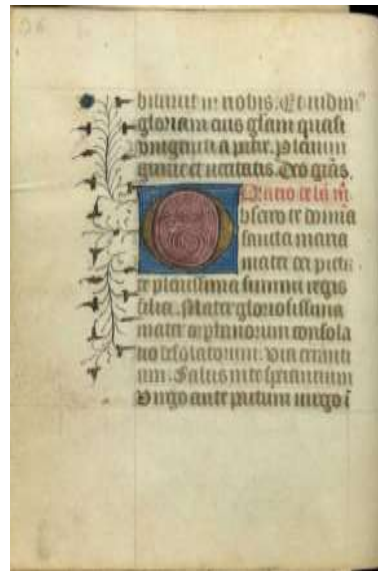 bitauit in nobis. Et uidim⁹
gloriam eius glam quasi
vnigeniti a patre. Plenum
gratie et ueritatis. Deo gras.
Oratio de
Obsecro te domina
sancta maria
mater dei pieta
te plenissima summi regis
filia. Mater gloriosissima
mater orphanorum consola
tio desolatorum. via erranti
um. Salus in te sperantium
Virgo ante partum uirgo ī